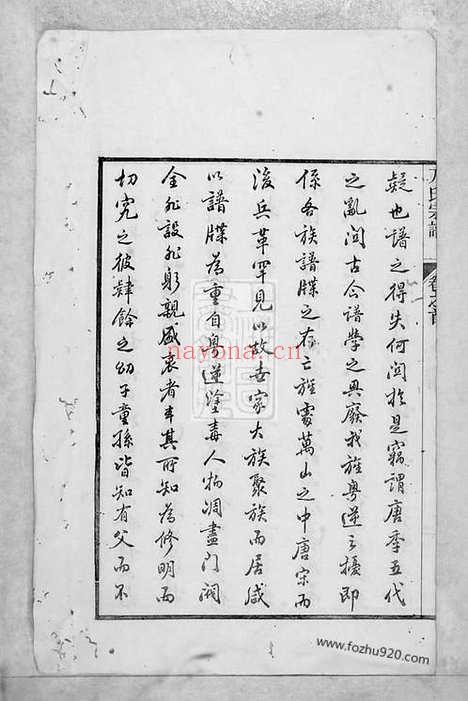 疑也譜之得失何関於是竊謂唐季五代
之亂関古今譜學之興廢我族粤逆之擾即
係各族譜牒之存亡族處萬山之中唐宋而
後兵革罕見以故世家大族聚族而居咸
以譜牒為重自粤逆塗毒人物凋盡門閥
全非設非躬親盛衰者本其所知為修明而
切究之彼肄餘之幼子童孫皆知有父而不
氏宗譜
卷之首
nayona.cn
www.fozhu920.com